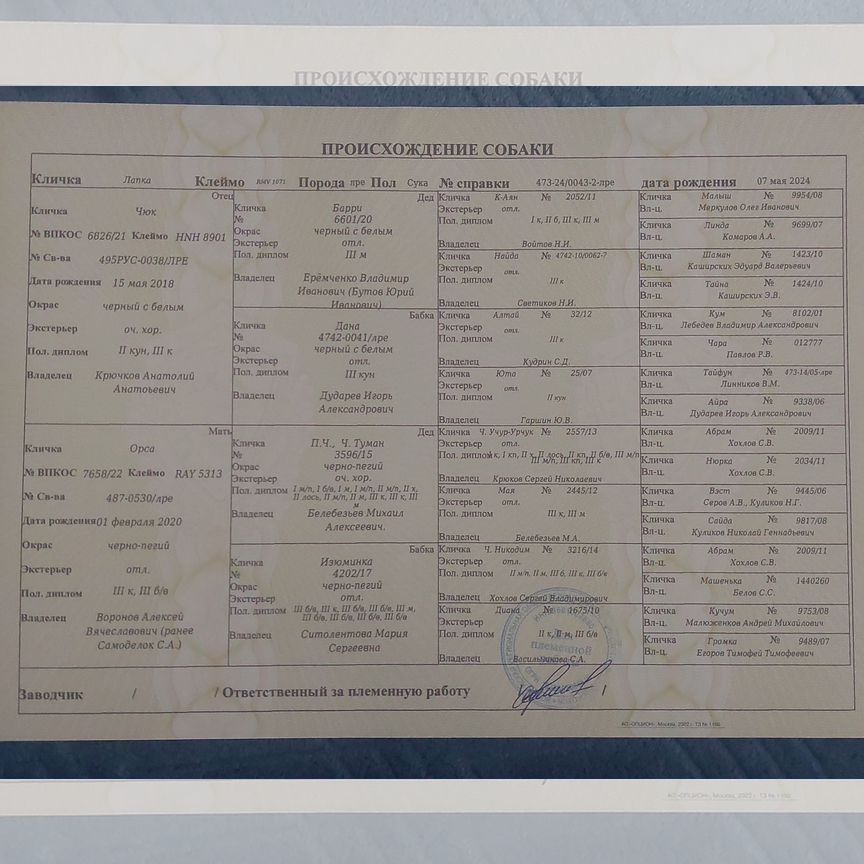 ПРОИСХОЖДЕНИЕ СОБАКИ
ПРОИСХОЖДЕНИЕ СОБАКИ
Кличка Лапка Клеймо RMV 1071 Порода лре Пол Сука № справки 473-24/0043-2-лре дата рождения 07 мая 2024
Отец
Кличка Чюк
№ ВПКОС 6826/21 Клеймо HNH 8901
№ Св-ва 495РУС-0038/ЛРЕ
Дата рождения 15 мая 2018
Окрас черный с белым
Экстерьер оч. хор.
Пол. диплом II кун, III к
Владелец Крючков Анатолий
Анатоьевич
Мать
Кличка Орса
№ ВПКОС 7658/22 Клеймо RAY 5313
№ Св-ва 487-0530/лре
Дата рождения 01 февраля 2020
Окрас черно-пегий
Экстерьер отл.
Пол. диплом III к, III б/в
Владелец Воронов Алексей
Вячеславович (ранее
Самоделок С.А.)
Дед
Кличка Барри
№ 6601/20
Окрас черный с белым
Экстерьер отл.
Пол. диплом III м
Владелец Ерёмченко Владимир
Иванович (Бутов Юрий
Иванович)
Бабка
Кличка Дана
№ 4742-0041/лре
Окрас черный с белым
Экстерьер отл.
Пол. диплом III кун
Владелец Дударев Игорь
Александрович
Дед
Кличка П.Ч., Ч. Туман
№ 3596/15
Окрас черно-пегий
Экстерьер оч. хор.
Пол. диплом I м/п, I б/в, I м, I м/п, II м/п, II х,
II лось, II м/п, II м, III к, III к, III
м
Владелец Белебезьев Михаил
Алексеевич.
Бабка
Кличка Изюминка
№ 4202/17
Окрас черно-пегий
Экстерьер отл.
Пол. диплом III б/в, III к, III б/в, III б/в, III м,
III б/в, III б/в, III б/в, III б/в
Владелец Ситолентова Мария
Сергеевна
Кличка К-Аян № 2052/11
Экстерьер отл.
Пол. диплом I к, II б, III к, III м
Владелец Войтов Н.И.
Кличка Найда № 4742-10/0062-7
Экстерьер отл.
Пол. диплом III к
Владелец Светиков Н.И.
Кличка Алтай № 32/12
Экстерьер отл.
Пол. диплом III к
Владелец Кудрин С.Д.
Кличка Юта № 25/07
Экстерьер отл.
Пол. диплом II кун
Владелец Гаршин Ю.В.
Кличка Ч. Учур-Урчук № 2557/13
Экстерьер отл.
Пол. диплом I к, I кп, II х, II лось, II кп, II б/в, III м/п,
III м/п, III кп, III к
Владелец Крюков Сергей Николаевич
Кличка Мая № 2445/12
Экстерьер отл.
Пол. диплом III к, III м
Владелец Белебезьев М.А.
Кличка Ч. Никодим № 3216/14
Экстерьер отл.
Пол. диплом II м/п, II м, III б, III к, III б/в
Владелец Хохлов Сергей Владимирович
Кличка Диана № 1675/10
Экстерьер
Пол. диплом II к, II м, III б/в
Владелец Васильчикова С.А.
Кличка Малыш № 9954/08
Вл-ц. Меркулов Олег Иванович
Кличка Линда № 9699/07
Вл-ц. Комаров А.А.
Кличка Шаман № 1423/10
Вл-ц. Каширских Эдуард Валерьевич
Кличка Тайна № 1424/10
Вл-ц. Каширских Э.В.
Кличка Кум № 8102/01
Вл-ц. Лебедев Владимир Александрович
Кличка Чара № 012777
Вл-ц. Павлов Р.В.
Кличка Тайфун № 473-14/05-лре
Вл-ц. Линников В.М.
Кличка Айра № 9338/06
Вл-ц. Дударев Игорь Александрович
Кличка Абрам № 2009/11
Вл-ц. Хохлов С.В.
Кличка Нюрка № 2034/11
Вл-ц. Хохлов С.В.
Кличка Вэст № 9445/06
Вл-ц. Серов А.В., Куликов Н.Г.
Кличка Сайда № 9817/08
Вл-ц. Куликов Николай Геннадьевич
Кличка Абрам № 2009/11
Вл-ц. Хохлов С.В.
Кличка Машенька № 1440260
Вл-ц. Белов С.С.
Кличка Кучум № 9753/08
Вл-ц. Малюженков Андрей Михайлович
Кличка Громка № 9489/07
Вл-ц. Егоров Тимофей Тимофеевич
племенной
Заводчик / / Ответственный за племенную работу /
АО «ОПЦИОН», Москва, 2022 г.
АО «ОПЦИОН», Москва, 2022 г.